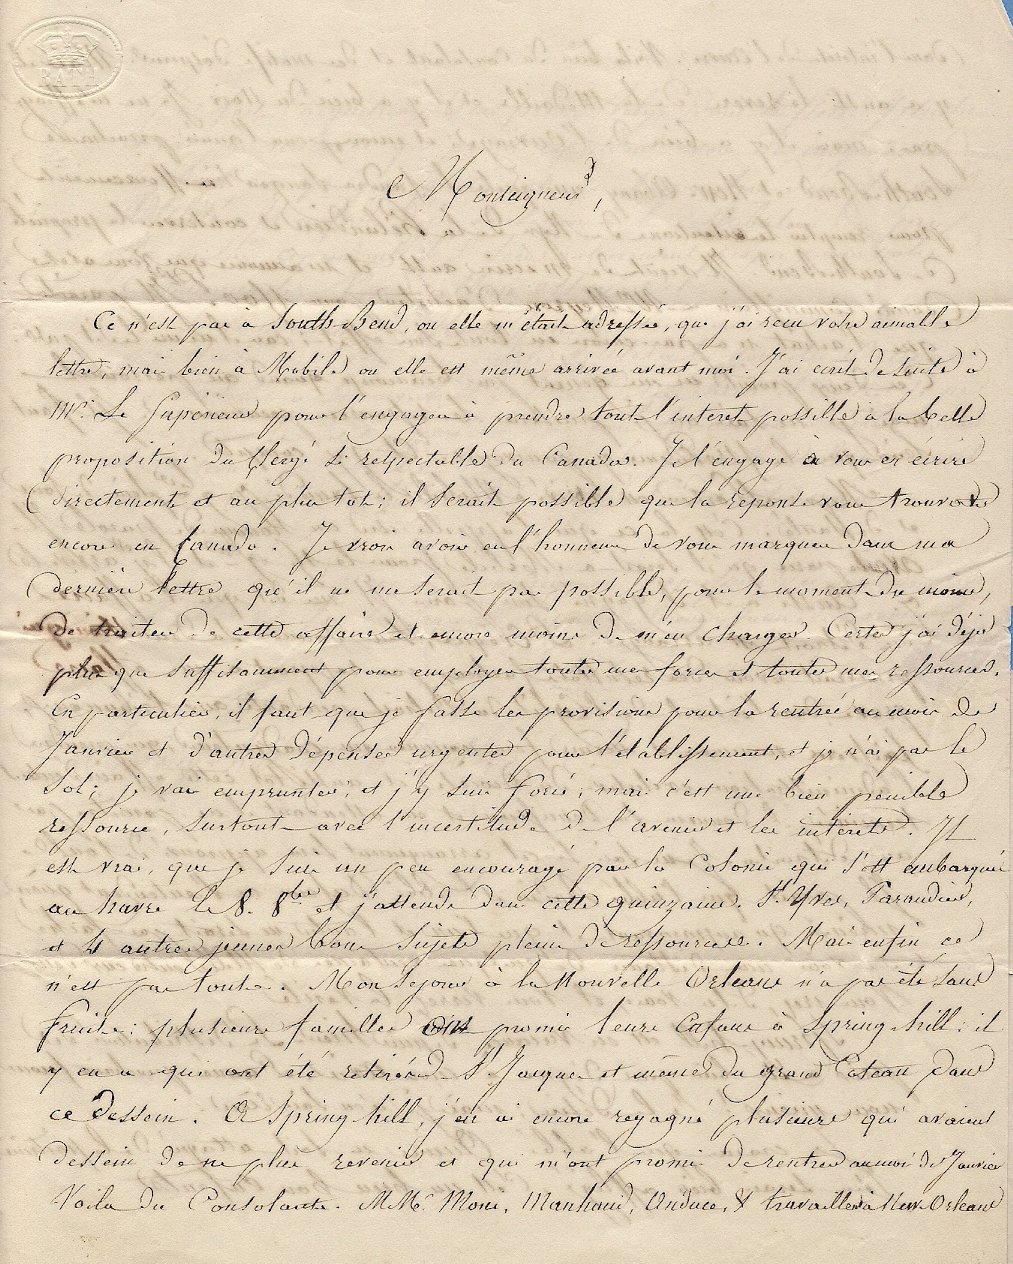 BATH
Monseigneur,
Ce n'est pas à South-Bend, ou elle m'était adressée, que j'ai recu votre aimable
lettre, mais bien à Mobile ou elle est même arrivée avant moi. J'ai ecrit de suite à
Mr. Le Supérieur pour l'engager à prendre tout l'interet possible à la belle
proposition du Clergé si respectable du Canada. Je l'engage à vous en écrire
directement et au plus tot; il serait possible que la reponse vous trouvat
encore en Canada. Je crois avoir eu l'honneur de vous marquer dans ma
dernière lettre qu'il ne me serait pas possible, pour le moment du moins,
de traiter de cette affaire et encore moins de m'en charger. Certes j'ai déja
plus que suffisamment pour employer toutes mes forces et toutes mes ressources.
En particulier, il faut que je fasse les provisions pour la rentrée au mois de
Janvier et d'autres dépenses urgentes pour l'etablissement, et je n'ai pas le
sol; je vais emprunter, et j'y suis forcé; mais c'est une bien penible
ressource, surtout avec l'incertitude de l'avenir et les intérets. Il
est vrai, que je suis un peu encouragé par la Colonie qui s'est embarquée
au havre le 8. 8bre et j'attends dans cette quinzaine. St Yves,
et 4 autres jeunes bons sujets pleins de ressources. Mais enfin ce
n'est pas tout. Mon sejour à la Nouvelle Orleans n'a pas été sans
fruits: plusieurs familles ont promis leurs Enfans à Spring-hill; il
y en a qui ont été retirés de St Jacques et même du grand Coteau dans
ce dessein. A Spring hill, j'en ai encore regagné plusieurs qui avaient
dessein de ne plus revenir et qui m'ont promis de rentrer au mois de Janvier
Voila du Consolant. MM. Moni, & travailler à New Orleans